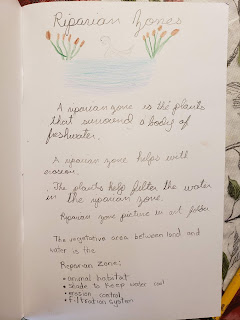 Riparian Zones
A riparian zone is the plants
that surround a body of
freshwater.
A riparian zone helps with
erosion.
The plants help filter the water
in the riparian zone.
Riparian zone picture in art folder
The vegetative area between land and
water is the
Riparian Zone:
• animal habitat
• shade to keep water cool
• erosion control
• filtration system